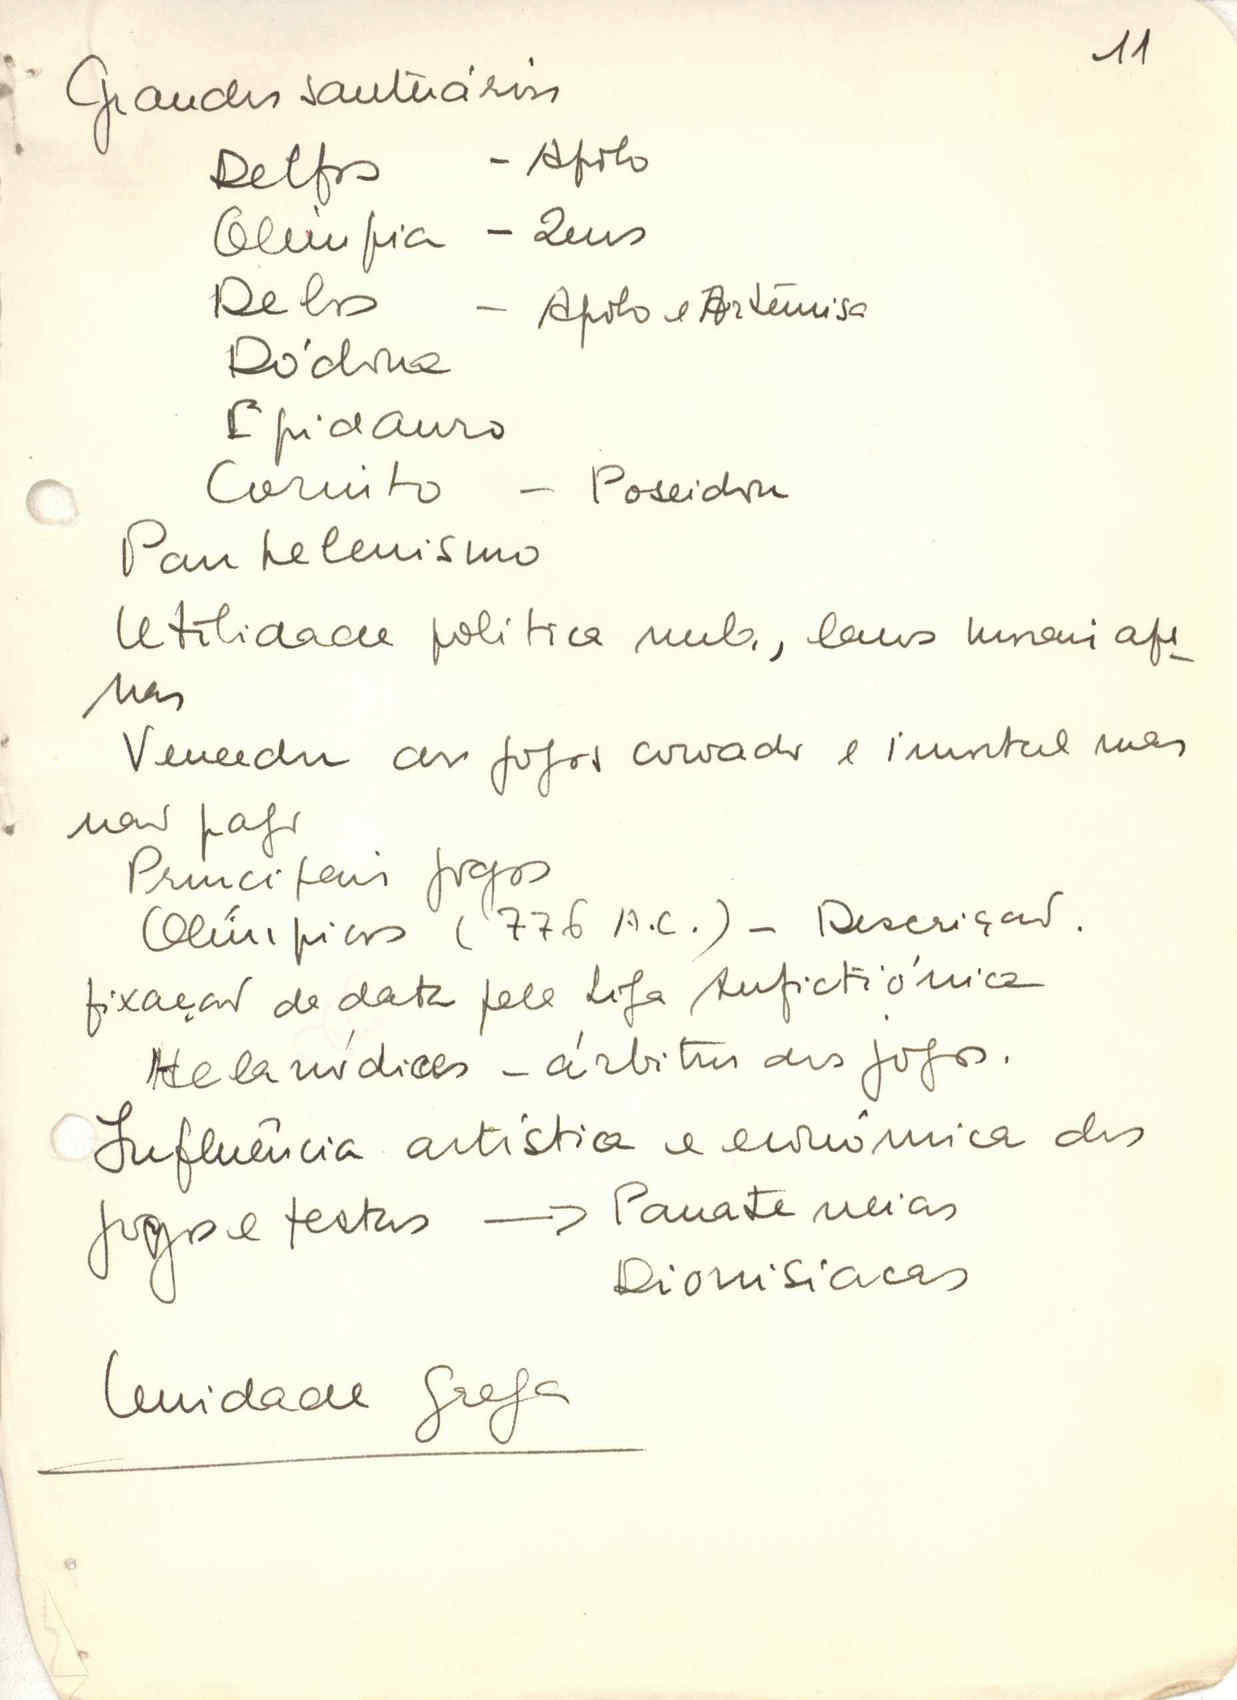 11
Grandes santuários
Delfos - Apolo
Olímpia - Zeus
Delos - Apolo e Artêmisa
Dódona
Epidauro
Corinto - Poseidon
Pan helenismo
Utilidade politica nula, laços morais ape-
nas
Vencedor dos jogos coroado e imortal mas
não pago
Principais jogos
Olímpicos (776 A.C.) - Descrição.
fixação de data pela Liga Anfictiónica
Helanódices - árbitros dos jogos.
Influência artística e económica dos
jogos e festas → Panateneias
Dionisiacas
Unidade grega